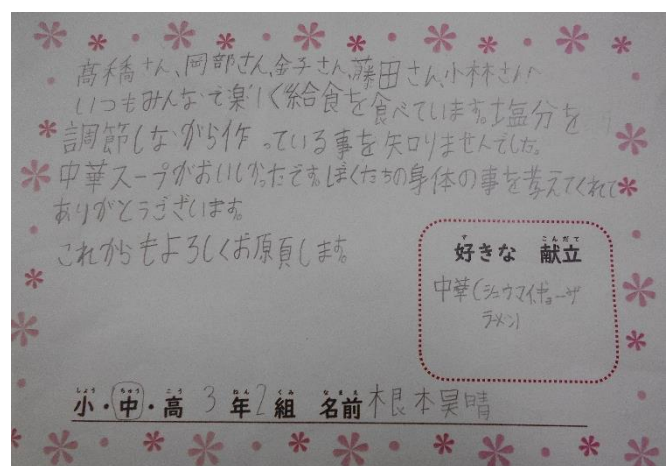 髙橋さん、岡部さん、金子さん、藤田さん、小林さんへ
いつもみんなで楽しく給食を食べています。塩分を
調節しながら作っている事を知りませんでした。
中華スープがおいしかったです。ぼくたちの身体の事を考えてくれて
ありがとうございます。
これからもよろしくお願します。
す こんだて
好きな 献立
中華(シュウマイ、ギョーザ
ラーメン)
しょう ちゅう こう ねん くみ なまえ
小・中・高 3年2組 名前 根本昊晴